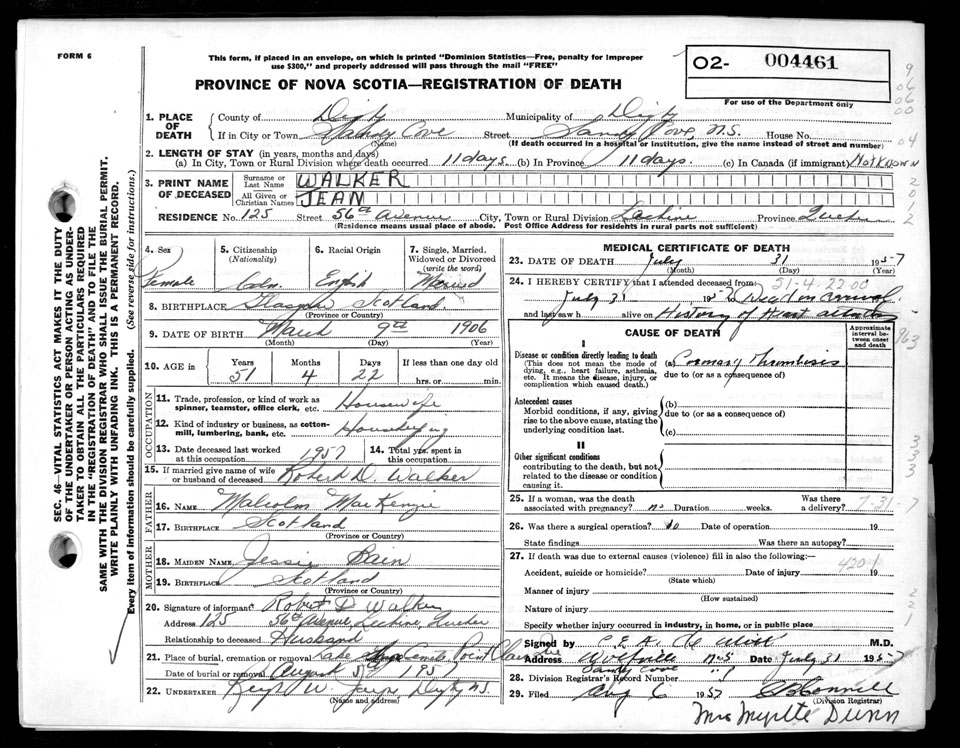 FORM 6
This form, if placed in an envelope, on which is printed "Dominion Statistics—Free, penalty for improper
use $300," and properly addressed will pass through the mail "FREE"
PROVINCE OF NOVA SCOTIA—REGISTRATION OF DEATH
O2- 004461
For use of the Department only
1. PLACE OF DEATH
County of Digby Municipality of Digby
If in City or Town Sandy Cove Street Sandy Cove, N.S. House No.
(Name) (If death occurred in a hospital or institution, give the name instead of street and number)
2. LENGTH OF STAY (in years, months and days)
(a) In City, Town or Rural Division where death occurred 11 days. (b) In Province 11 days. (c) In Canada (if immigrant) Not Known
3. PRINT NAME OF DECEASED
Surname or Last Name WALKER
All Given or Christian Names JEAN
RESIDENCE No. 125 Street 56th Avenue City, Town or Rural Division Lachine Province Quebec
(Residence means usual place of abode. Post Office Address for residents in rural parts not sufficient)
4. Sex
Female
5. Citizenship
(Nationality)
Cdn.
6. Racial Origin
English
7. Single, Married, Widowed or Divorced
(write the word)
Married
8. BIRTHPLACE Glasgow Scotland
(Province or Country)
9. DATE OF BIRTH March 9th 1906
(Month) (Day) (Year)
10. AGE in
Years 51
Months 4
Days 22
If less than one day old
hrs. or min.
OCCUPATION
11. Trade, profession, or kind of work as spinner, teamster, office clerk, etc. Housewife
12. Kind of industry or business, as cotton-mill, lumbering, bank, etc. Housekeeping
13. Date deceased last worked at this occupation 1957
14. Total yrs. spent in this occupation
15. If married give name of wife or husband of deceased Robert D. Walker
FATHER
16. NAME Malcolm MacKenzie
17. BIRTHPLACE Scotland
(Province or Country)
MOTHER
18. MAIDEN NAME Jessie Bain
19. BIRTHPLACE Scotland
(Province or Country)
20. Signature of informant Robert D Walker
Address 125 56th Avenue, Lachine, Quebec
Relationship to deceased Husband
21. Place of burial, cremation or removal Lake Point Claire
Date of burial or removal August 5th 1957
22. UNDERTAKER W. Jayne Digby N.S.
(Name and address)
MEDICAL CERTIFICATE OF DEATH
23. DATE OF DEATH July 31 1957
(Month) (Day) (Year)
24. I HEREBY CERTIFY that I attended deceased from
51-4.2200
July 31 1957 Dead on arrival.
and last saw h alive on History of Heart attacks
CAUSE OF DEATH
Approximate interval between onset and death
I
Disease or condition directly leading to death
(This does not mean the mode of dying, e.g., heart failure, asthenia, etc. It means the disease, injury, or complication which caused death.)
(a) Coronary Thrombosis
due to (or as a consequence of)
Antecedent causes
Morbid conditions, if any, giving rise to the above cause, stating the underlying condition last.
(b)
due to (or as a consequence of)
(c)
II
Other significant conditions
contributing to the death, but not related to the disease or condition causing it.
25. If a woman, was the death associated with pregnancy? no Duration weeks. Was there a delivery?
7-31-7
26. Was there a surgical operation? No Date of operation 19
State findings Was there an autopsy?
27. If death was due to external causes (violence) fill in also the following:—
420-1
Accident, suicide or homicide? Date of injury 19
(State which)
Manner of injury
(How sustained)
Nature of injury
Specify whether injury occurred in industry, in home, or in public place
Signed by P.E.A. M.D.
Address Wolfville N.S. Date July 31 1957
Sandy Cove
28. Division Registrar's Record Number
29. Filed Aug 6 1957
(Division Registrar)
Mrs Myrtle Dunn
SEC. 46—VITAL STATISTICS ACT MAKES IT THE DUTY
OF THE UNDERTAKER OR PERSON ACTING AS UNDER-
TAKER TO OBTAIN ALL THE PARTICULARS REQUIRED
IN THE "REGISTRATION OF DEATH" AND TO FILE THE
SAME WITH THE DIVISION REGISTRAR WHO SHALL ISSUE THE BURIAL PERMIT.
WRITE PLAINLY WITH UNFADING INK. THIS IS A PERMANENT RECORD.
Every item of information should be carefully supplied. (See reverse side for instructions.)